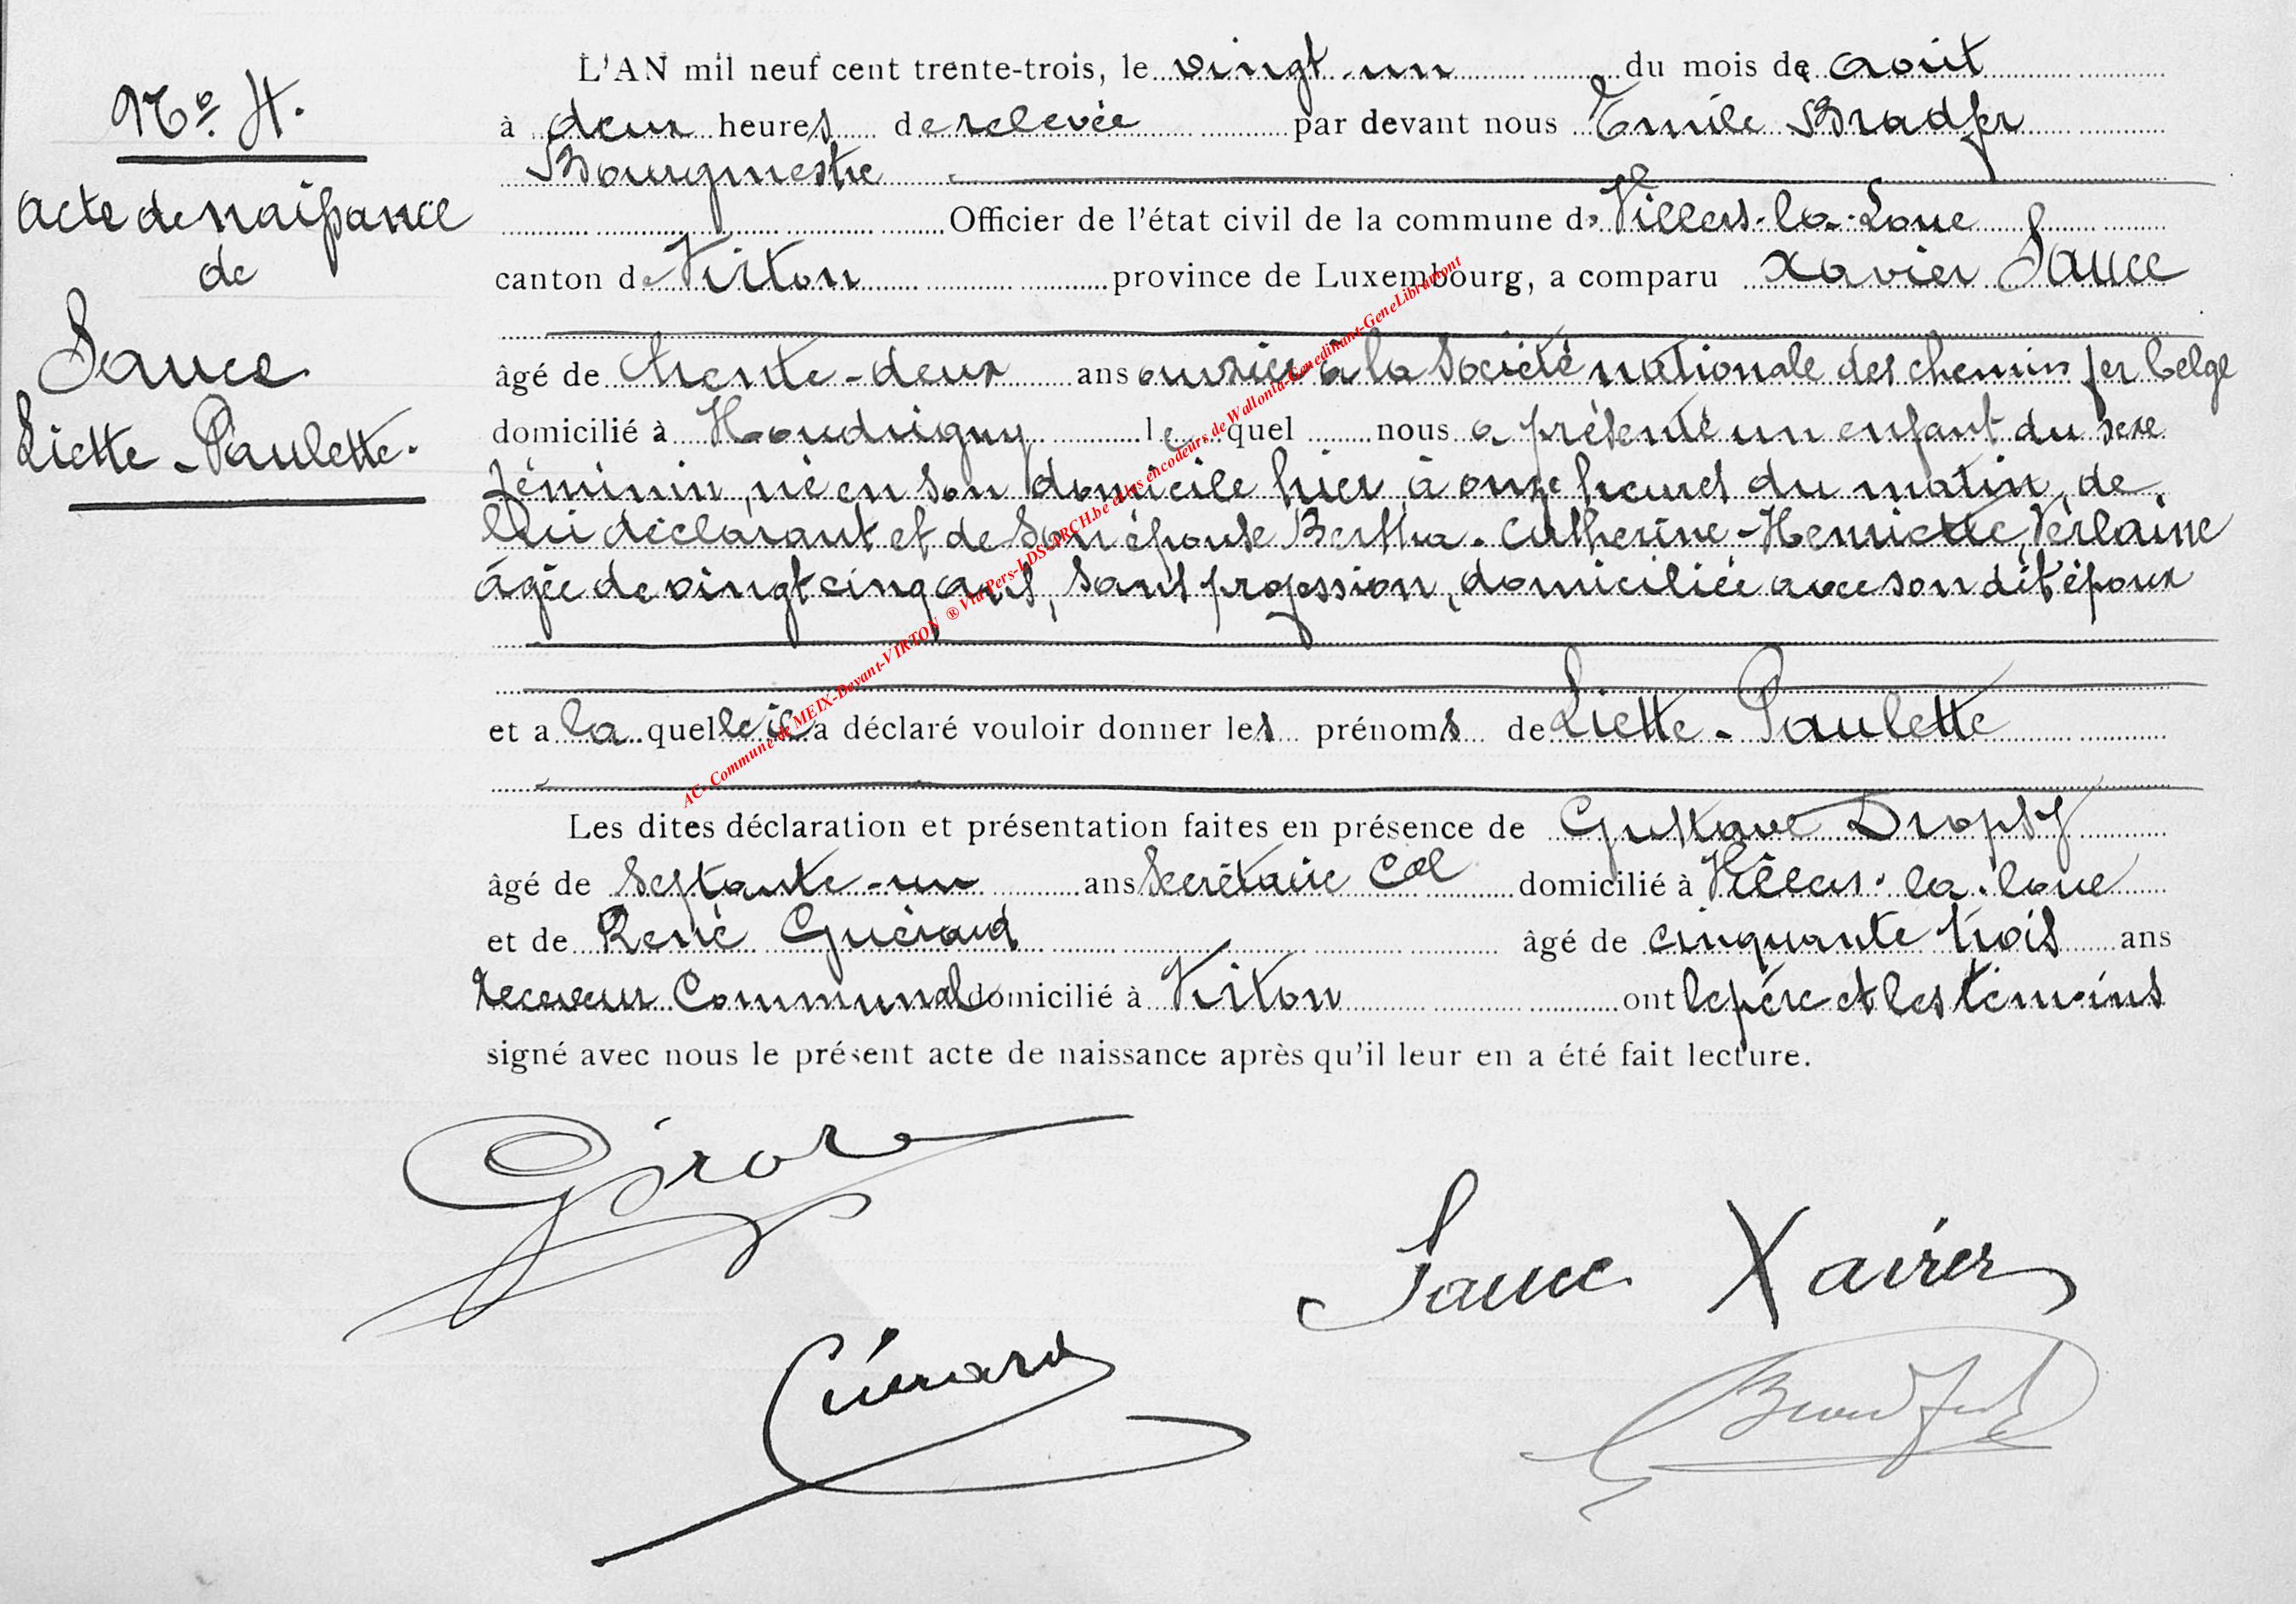 N° 4.
Acte de naissance
de
Sauce
Liette - Paulette.
L'AN mil neuf cent trente-trois, le vingt-un du mois de août
à deux heures de relevée par devant nous Emile Bradfer
Bourgmestre
Officier de l'état civil de la commune de Villers-la-Loue
canton de Virton province de Luxembourg, a comparu Xavier Sauce
âgé de trente-deux ans ouvrier à la Société nationale des chemins fer belge
domicilié à Houdrigny lequel nous a présenté un enfant du sexe
féminin, né en son domicile hier à onze heures du matin, de
lui déclarant et de son épouse Bertha-Catherine-Henriette Verlaine
âgée de vingt cinq ans, sans profession, domiciliée avec son dit époux
et a la quelle il a déclaré vouloir donner les prénoms de Liette - Paulette
Les dites déclaration et présentation faites en présence de Gustave Dropsy
âgé de septante-un ans secrétaire Cal domicilié à Villers-la-loue
et de René Guérard âgé de cinquante trois ans
receveur Communal domicilié à Virton ont le père et les témoins
signé avec nous le présent acte de naissance après qu'il leur en a été fait lecture.
Sauce Xavier
Guérard
Bradfer
AC- Commune de MEIX-Devant-VIRTON ® Via Pers-LDS-ARCH.be et les encodeurs de Wallonia-Genedinant-GeneLibramont